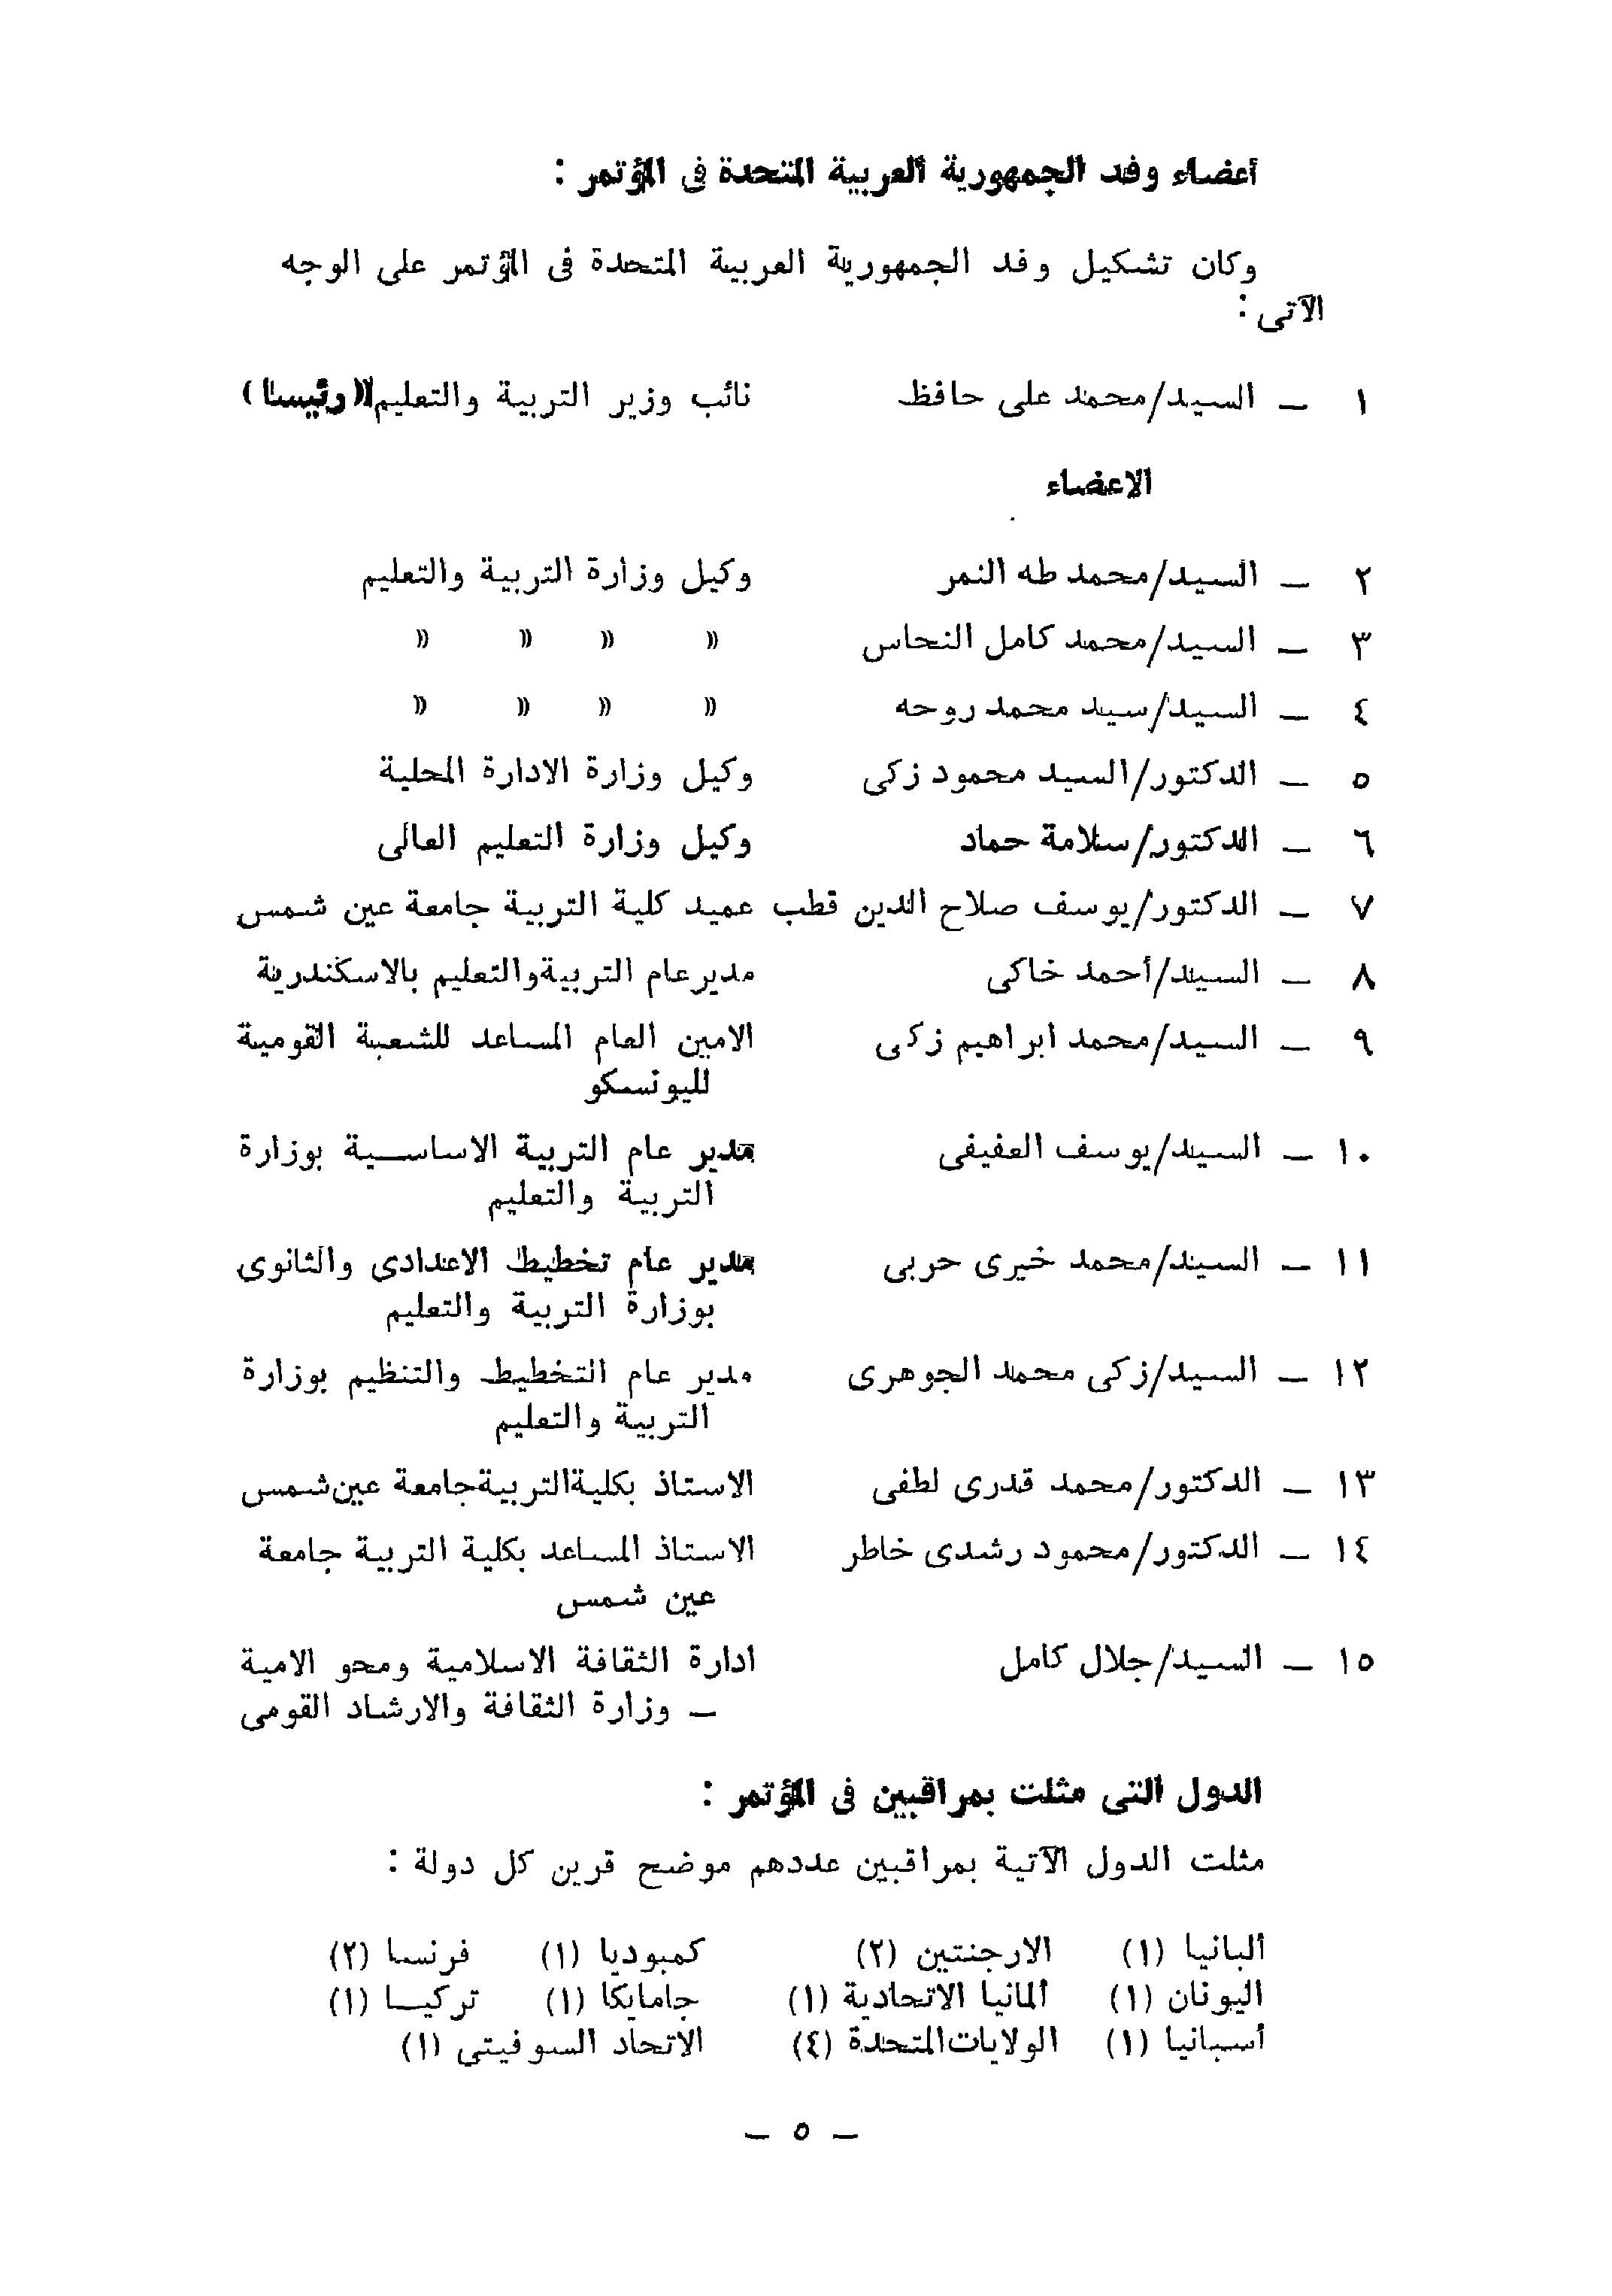 أعضاء وفد الجمهورية العربية المتحدة فى المؤتمر :
وكان تشكيل وفد الجمهورية العربية المتحدة فى المؤتمر على الوجه
الآتى :
١ — السيد/محمد على حافظ نائب وزير التربية والتعليم (رئيسا)
الاعضاء
٢ — السيد/محمد طه النمر وكيل وزارة التربية والتعليم
٣ — السيد/محمد كامل النحاس » » » »
٤ — السيد/سيد محمد روحه » » » »
٥ — الدكتور/السيد محمود زكى وكيل وزارة الادارة المحلية
٦ — الدكتور/سلامة حماد وكيل وزارة التعليم العالى
٧ — الدكتور/يوسف صلاح الدين قطب عميد كلية التربية جامعة عين شمس
٨ — السيد/أحمد خاكى مدير عام التربية والتعليم بالاسكندرية
٩ — السيد/محمد ابراهيم زكى الامين العام المساعد للشعبة القومية
لليونسكو
١٠ — السيد/يوسف العفيفى مدير عام التربية الاساسية بوزارة
التربية والتعليم
١١ — السيد/محمد خيرى حربى مدير عام تخطيط الاعدادى والثانوى
بوزارة التربية والتعليم
١٢ — السيد/زكى محمد الجوهرى مدير عام التخطيط والتنظيم بوزارة
التربية والتعليم
١٣ — الدكتور/محمد قدرى لطفى الاستاذ بكلية التربية جامعة عين شمس
١٤ — الدكتور/محمود رشدى خاطر الاستاذ المساعد بكلية التربية جامعة
عين شمس
١٥ — السيد/جلال كامل ادارة الثقافة الاسلامية ومحو الامية
— وزارة الثقافة والارشاد القومى
الدول التى مثلت بمراقبين فى المؤتمر :
مثلت الدول الآتية بمراقبين عددهم موضح قرين كل دولة :
ألبانيا (١) الارجنتين (٢) كمبوديا (١) فرنسا (٢)
اليونان (١) ألمانيا الاتحادية (١) جامايكا (١) تركيا (١)
أسبانيا (١) الولايات المتحدة (٤) الاتحاد السوفيتى (١)
— ٥ —